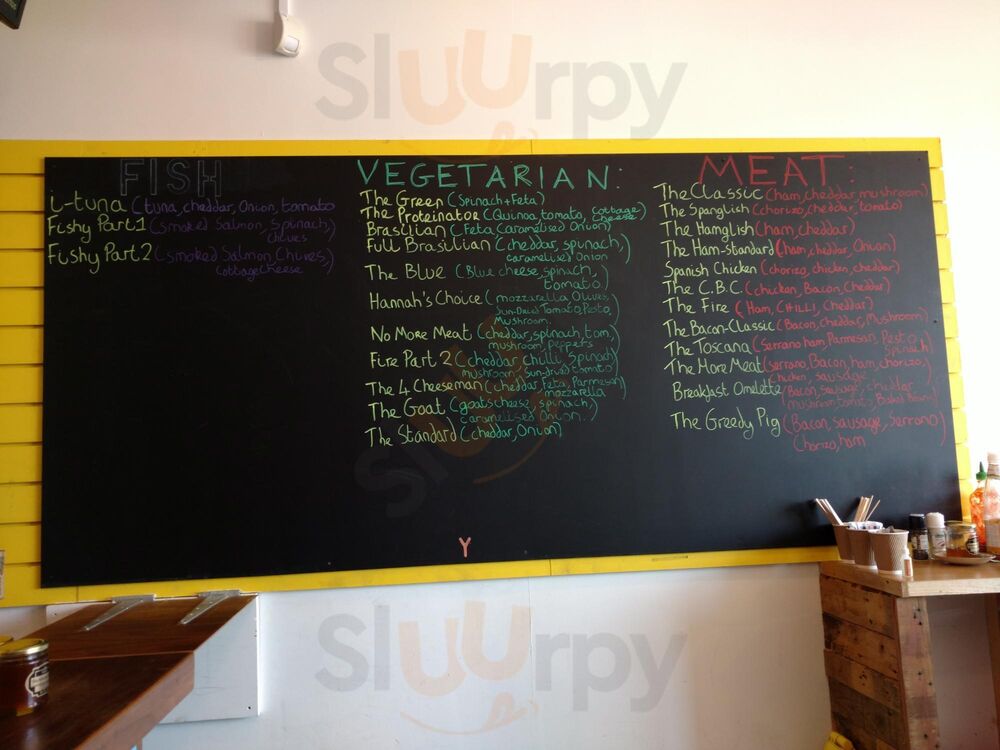 Sluurpy
FISH
i-tuna (tuna, cheddar, Onion, tomato
Fishy Part 1 (smoked Salmon, spinach,)
chives
Fishy Part 2 (smoked Salmon Chives,)
cottage cheese
VEGETARIAN:
The Green (Spinach+Feta)
The Proteinator (Quinoa, tomato, cottage cheese)
Brasilian (Feta, Caramelised Onion)
Full Brasilian (cheddar, spinach,)
caramelised Onion
The Blue (Blue cheese, spinach,
tomato)
Hannah's Choice (mozzarella, Olives,
Sun-Dried Tomato, Pesto,
Mushroom.
No More Meat (Cheddar, spinach, tom,
mushroom, peppers
Fire Part. 2 (cheddar, chilli, Spinach)
mushroom, Sun-dried tomato
The 4 Cheeseman (cheddar, Feta, Parmesan)
mozzarella
The Goat (goats cheese, spinach,)
caramelised Onion.
The Standard (cheddar, Onion)
MEAT:
The Classic (ham, cheddar, mushroom)
The Spanglish (chorizo, cheddar, tomato)
The Hamglish (ham, cheddar)
The Ham-standard (ham, cheddar, Onion)
Spanish Chicken (chorizo, chicken, cheddar)
The C.B.C. (chicken, Bacon, Cheddar)
The Fire (Ham, CHILLI, Cheddar)
The Bacon-Classic (Bacon, Cheddar, Mushroom)
The Toscana (Serrano ham, Parmesan, Pesto
Spinach)
The More Meat (serrano, Bacon, ham, chorizo,)
chicken, sausage
Breakfast Omelette (Bacon, sausage, cheddar
mushroom, tomato, Baked Beans)
The Greedy Pig (Bacon, sausage, Serrano)
Chorizo, ham
Y
Sluurpy